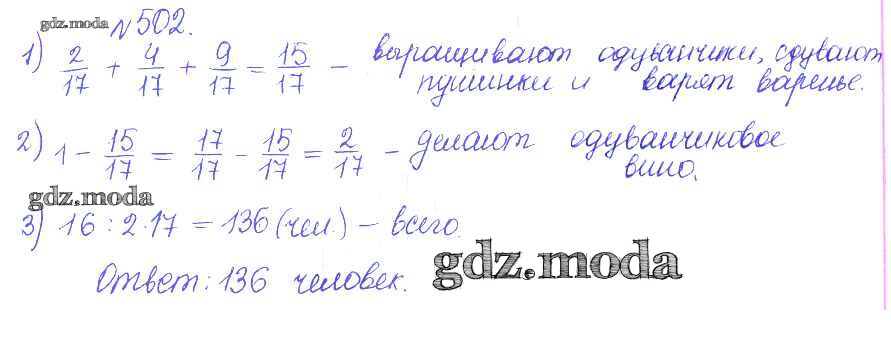 gdz.moda №502.
1) 2/17 + 4/17 + 9/17 = 15/17 - выращивают одуванчики, сдувают
пушинки и варят варенье.
2) 1 - 15/17 = 17/17 - 15/17 = 2/17 - делают одуванчиковое
вино.
gdz.moda
3) 16 : 2 · 17 = 136 (чел.) - всего.
Ответ: 136 человек. gdz.moda